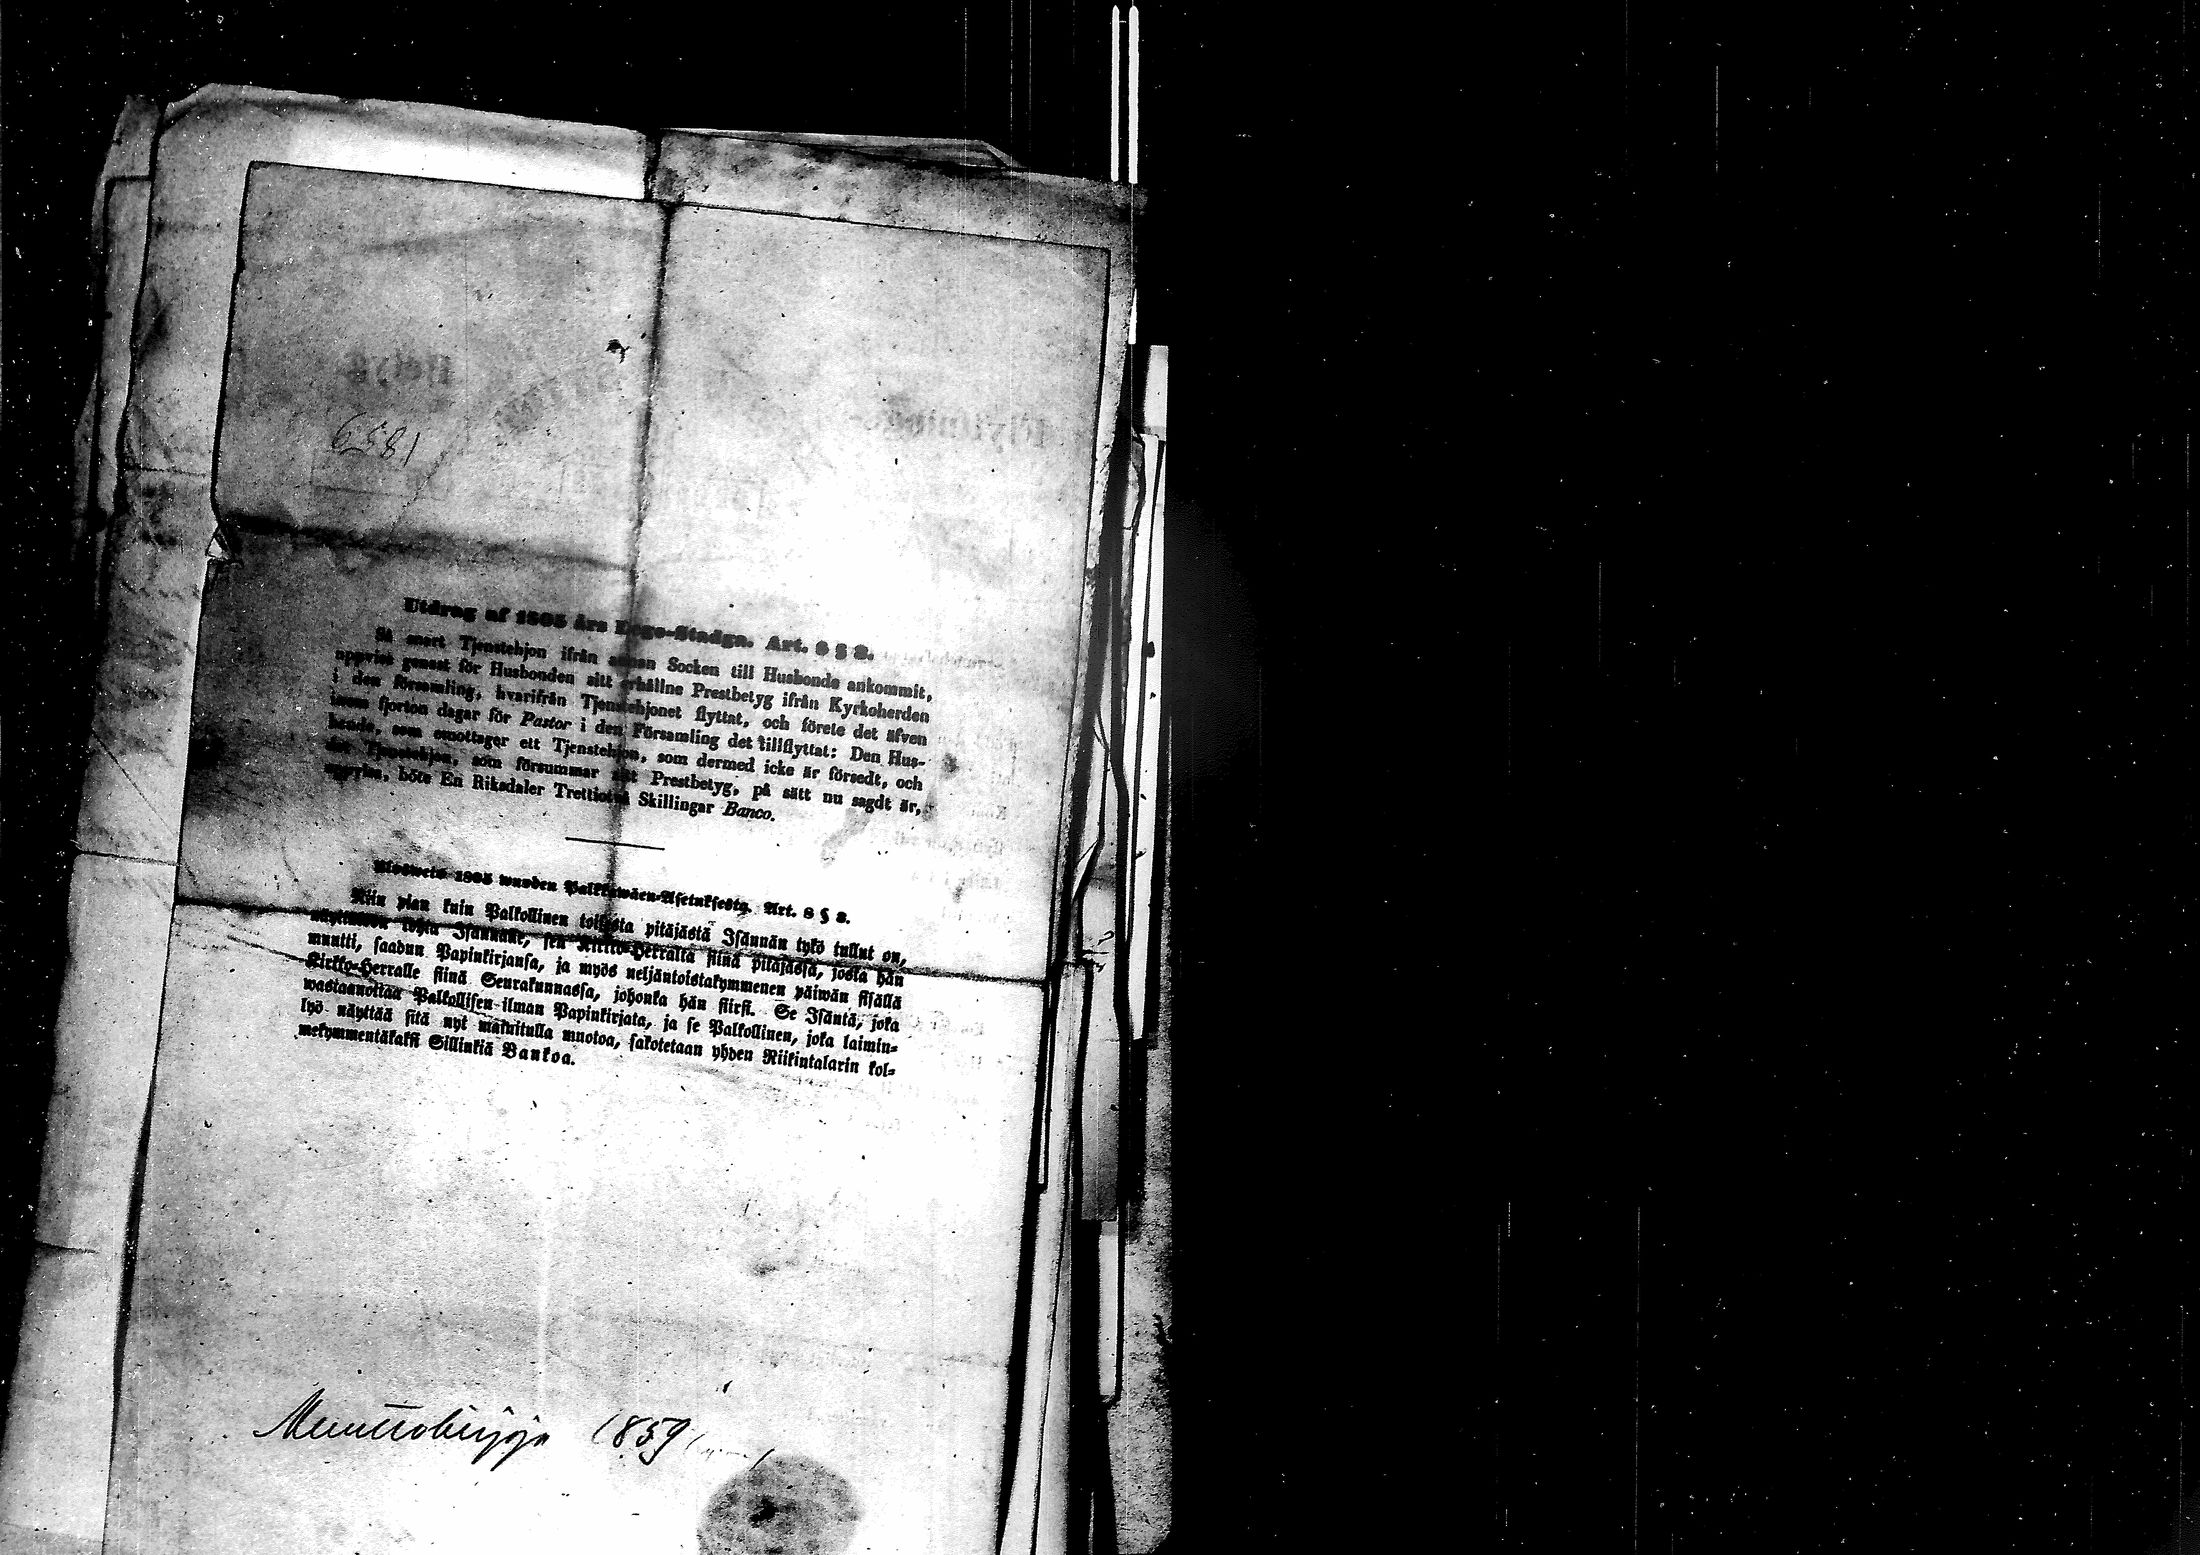 6581
Utdrag af 1805 års Lego-Stadga. Art. 8 § 8.
Så snart Tjenstehjon ifrån annan Socken till Husbonde ankommit,
uppvise genast för Husbonden sitt erhållne Prestbetyg ifrån Kyrkoherden
i den församling, hvarifrån Tjenstehjonet flyttat, och förete det äfven
inom fjorton dagar för Pastor i den Församling det tillflyttat: Den Hus-
bonde, som emottager ett Tjenstehjon, som dermed icke är försedt, och
det Tjenstehjon, som försummar sitt Prestbetyg, på sätt nu sagdt är,
uppvisa, böte En Riksdaler Trettiotvå Skillingar Banco.
1805 wuoden Palkkawäen-Asetuksesta. Art. 8 § 8.
Niin pian kuin Palkollinen toisesta pitäjästä Isännän tykö tullut on,
näyttäköön kohta Isännälle, sen Kirkko-Herralta siinä pitäjässä, josta hän
muutti, saadun Papinkirjansa, ja myös neljäntoistakymmenen päiwän sisällä
Kirkko-Herralle siinä Seurakunnassa, johonka hän siirsi. Se Isäntä, joka
wastaanottaa Palkollisen ilman Papinkirjata, ja se Palkollinen, joka laimin-
lyö näyttää sitä nyt mainitulla muotoa, sakotetaan yhden Riikintalarin kol-
mekymmentäkaksi Sillinkiä Bankoa.
Muuttokirjoja 1859